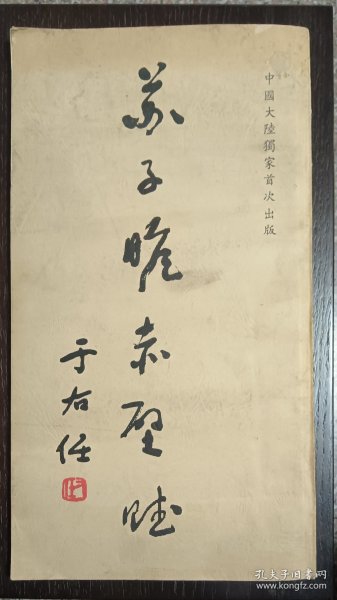 中國大陸獨家首次出版
苏子瞻赤壁賦
于右任
孔夫子旧书网
www.kongfz.com